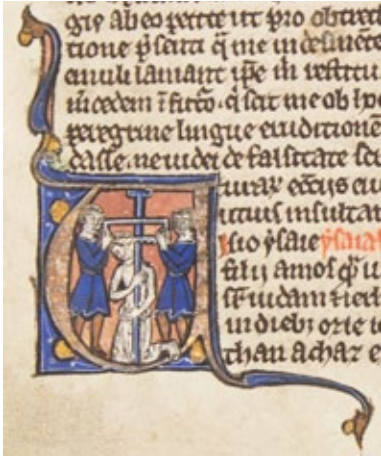 ab eo ut pro obtrect
tione p̃senti q̃ me indesinent
emuli laniant ip̃e m restitu
mcedem ĩ futo . q̃ scit me ob
peregrine lingue eruditionẽ
dasse . ne iudei de falsitate sc
turaꝝ eccliis eiu
iutius insultar
isio ysaie ysaia
filij amos q̃ ui
iudam ⁊
in dieb; ozie io
than achaz e